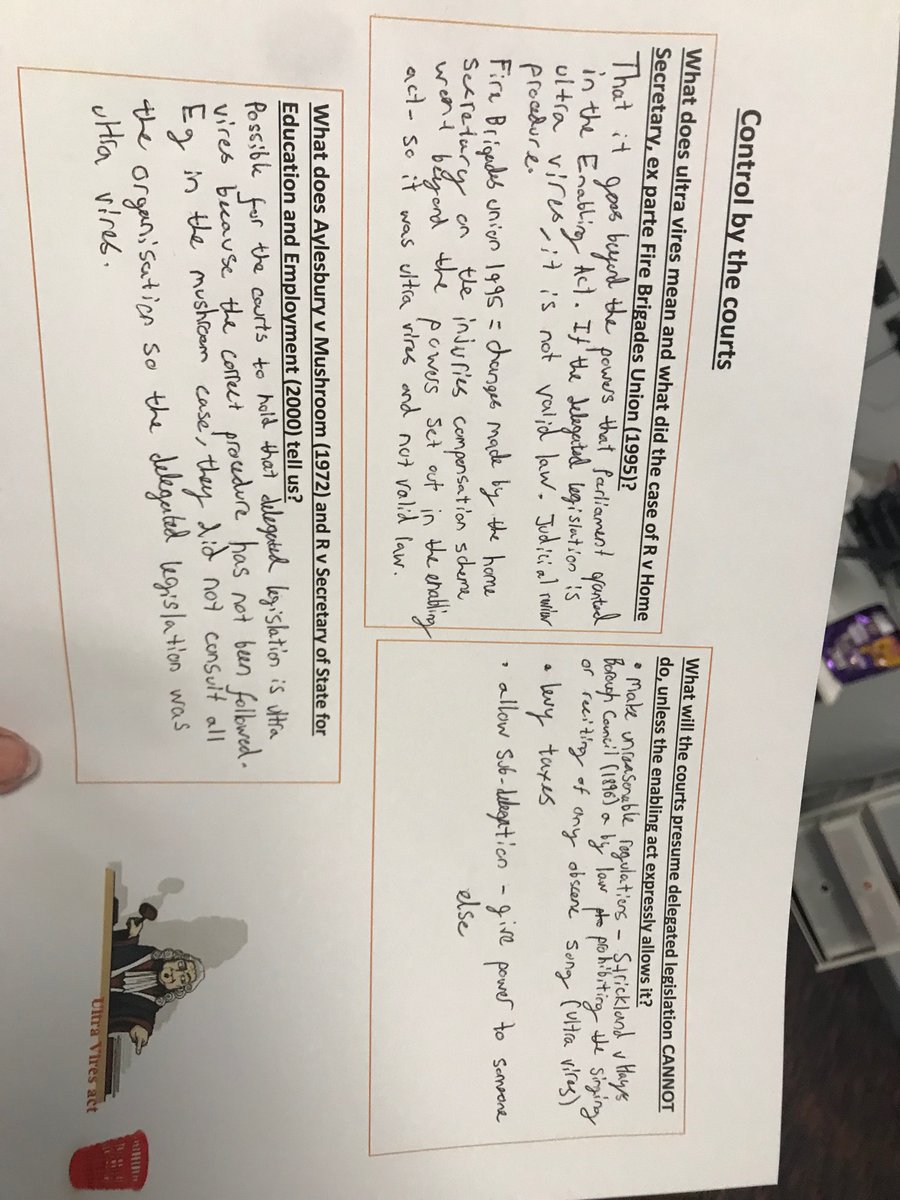 Control by the courts
What does ultra vires mean and what did the case of R v Home
Secretary, ex parte Fire Brigades Union (1995)?
That it goes beyond the powers that Parliament granted
in the Enabling Act. If the delegated legislation is
ultra vires, it is not valid law. Judicial review
procedure.
Fire Brigades union 1995 = changes made by the home
Secretary on the injuries compensation scheme
went beyond the powers set out in the enabling
act - so it was ultra vires and not valid law.
What does Aylesbury v Mushroom (1972) and R v Secretary of State for
Education and Employment (2000) tell us?
Possible for the courts to hold that delegated legislation is ultra
vires because the correct procedure has not been followed.
Eg in the mushroom case, they did not consult all
the organisation so the delegated legislation was
ultra vires.
What will the courts presume delegated legislation CANNOT
do, unless the enabling act expressly allows it?
• Make unreasonable regulations - Strickland v Hays
Borough Council (1896) a by law prohibiting the singing
or reciting of any obscene song (ultra vires)
• levy taxes
• allow sub-delegation - give power to someone
else
Ultra Vires act